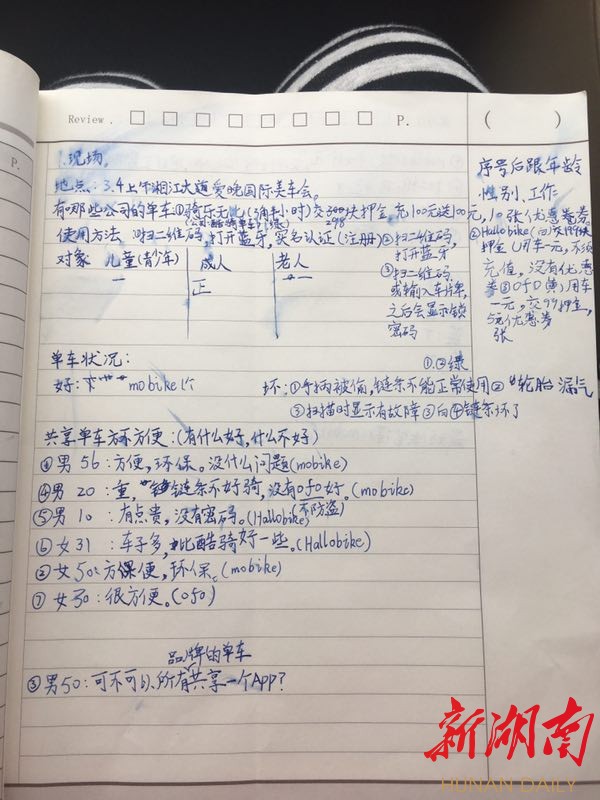 Review. P. ( )
P.
1.现场.
地点:3.4上午湘江大道爱晚国际美车会.
有哪些公司的单车①骑乐无比(3角半小时)交300块押金.充100元送100元,10张优惠券
298
使用方法 ①扫二维码,打开蓝牙,实名认证(注册)
②扫二维码,
打开蓝牙
③扫二维码
或输入车牌,
之后会显示锁
密码
对象 儿童(青少年) 成人 老人
一 正
序号后跟年龄
性别、工作
②Hallobike(白)交199块
押金1元用车一元,不须
充值,没有优惠
券③ofo(黄)用车
一元,交99押金,
5元优惠券
张
单车状况: ①.②绿
好: mobike1个 坏:①手柄被偷,链条不能正常使用② 轮胎漏气
③扫描时显示有故障③白④链条坏了
共享单车方不方便:(有什么好,什么不好)
③男 56:方便,环保。没什么问题(mobike)
④男 20:重,链条不好骑,没有ofo好。(mobike)
⑤男 10:有点贵,没有密码。(Hallobike)(不防盗)
⑥女31:车子多,比酷骑好一些。(Hallobike)
②女50:方便,环保。(mobike)
⑦女30:很方便。(ofo)
品牌的单车
③男50:可不可以所有共享一个App?
新湖南
HUNAN DAILY